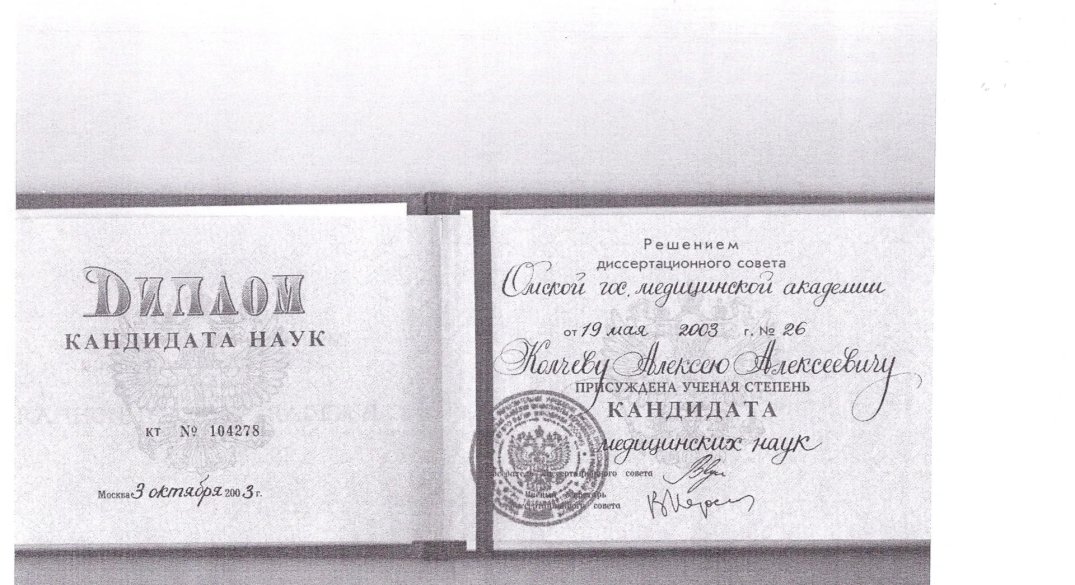 ДИПЛОМ
КАНДИДАТА НАУК
КТ № 104278
Москва 3 октября 2003 г.
Решением
диссертационного совета
Омской гос. медицинской академии
от 19 мая 2003 г. № 26
Колчеву Алексею Алексеевичу
ПРИСУЖДЕНА УЧЕНАЯ СТЕПЕНЬ
КАНДИДАТА
медицинских наук
диссертационного совета
Ученый секретарь
диссертационного совета